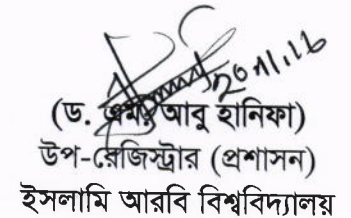 (ড. এমএ আবু হানিফা)
উপ-রেজিস্ট্রার (প্রশাসন)
ইসলামি আরবি বিশ্ববিদ্যালয়